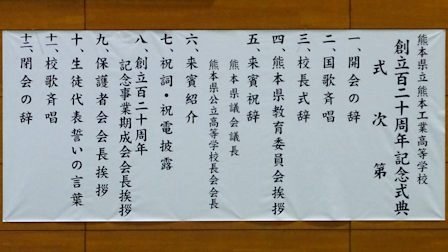 熊本県立 熊本工業高等学校
創立百二十周年記念式典
式次第
一、開会の辞
二、国歌斉唱
三、校長式辞
四、熊本県教育委員会挨拶
五、来賓祝辞
熊本県議会議長
熊本県公立高等学校長会会長
六、来賓紹介
七、祝詞・祝電披露
八、創立百二十周年
記念事業期成会会長挨拶
九、保護者会会長挨拶
十、生徒代表誓いの言葉
十一、校歌斉唱
十二、閉会の辞